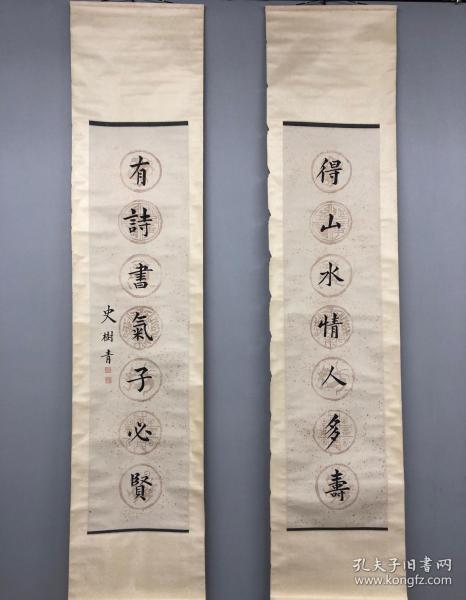 得山水情人多壽
有詩書氣子必賢
史樹青
孔夫子旧書网
www.kongfz.com